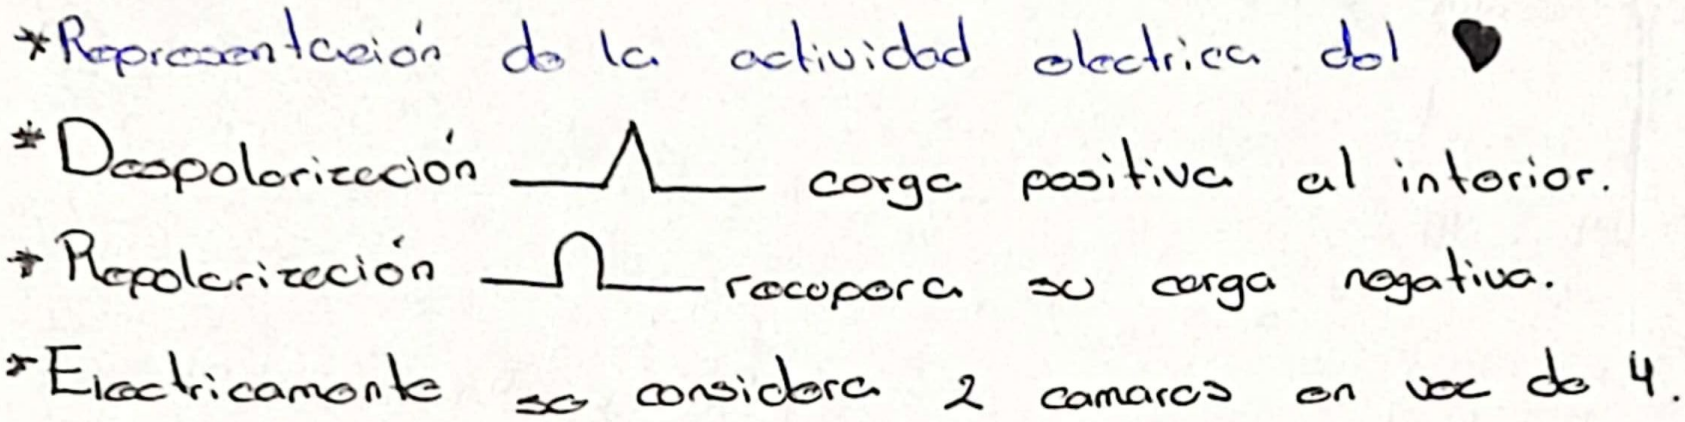 *Representación de la actividad electrica del ♥
*Despolarización carga positiva al interior.
*Repolarización recupera su carga negativa.
*Electricamente se considera 2 camaras en vez de 4.